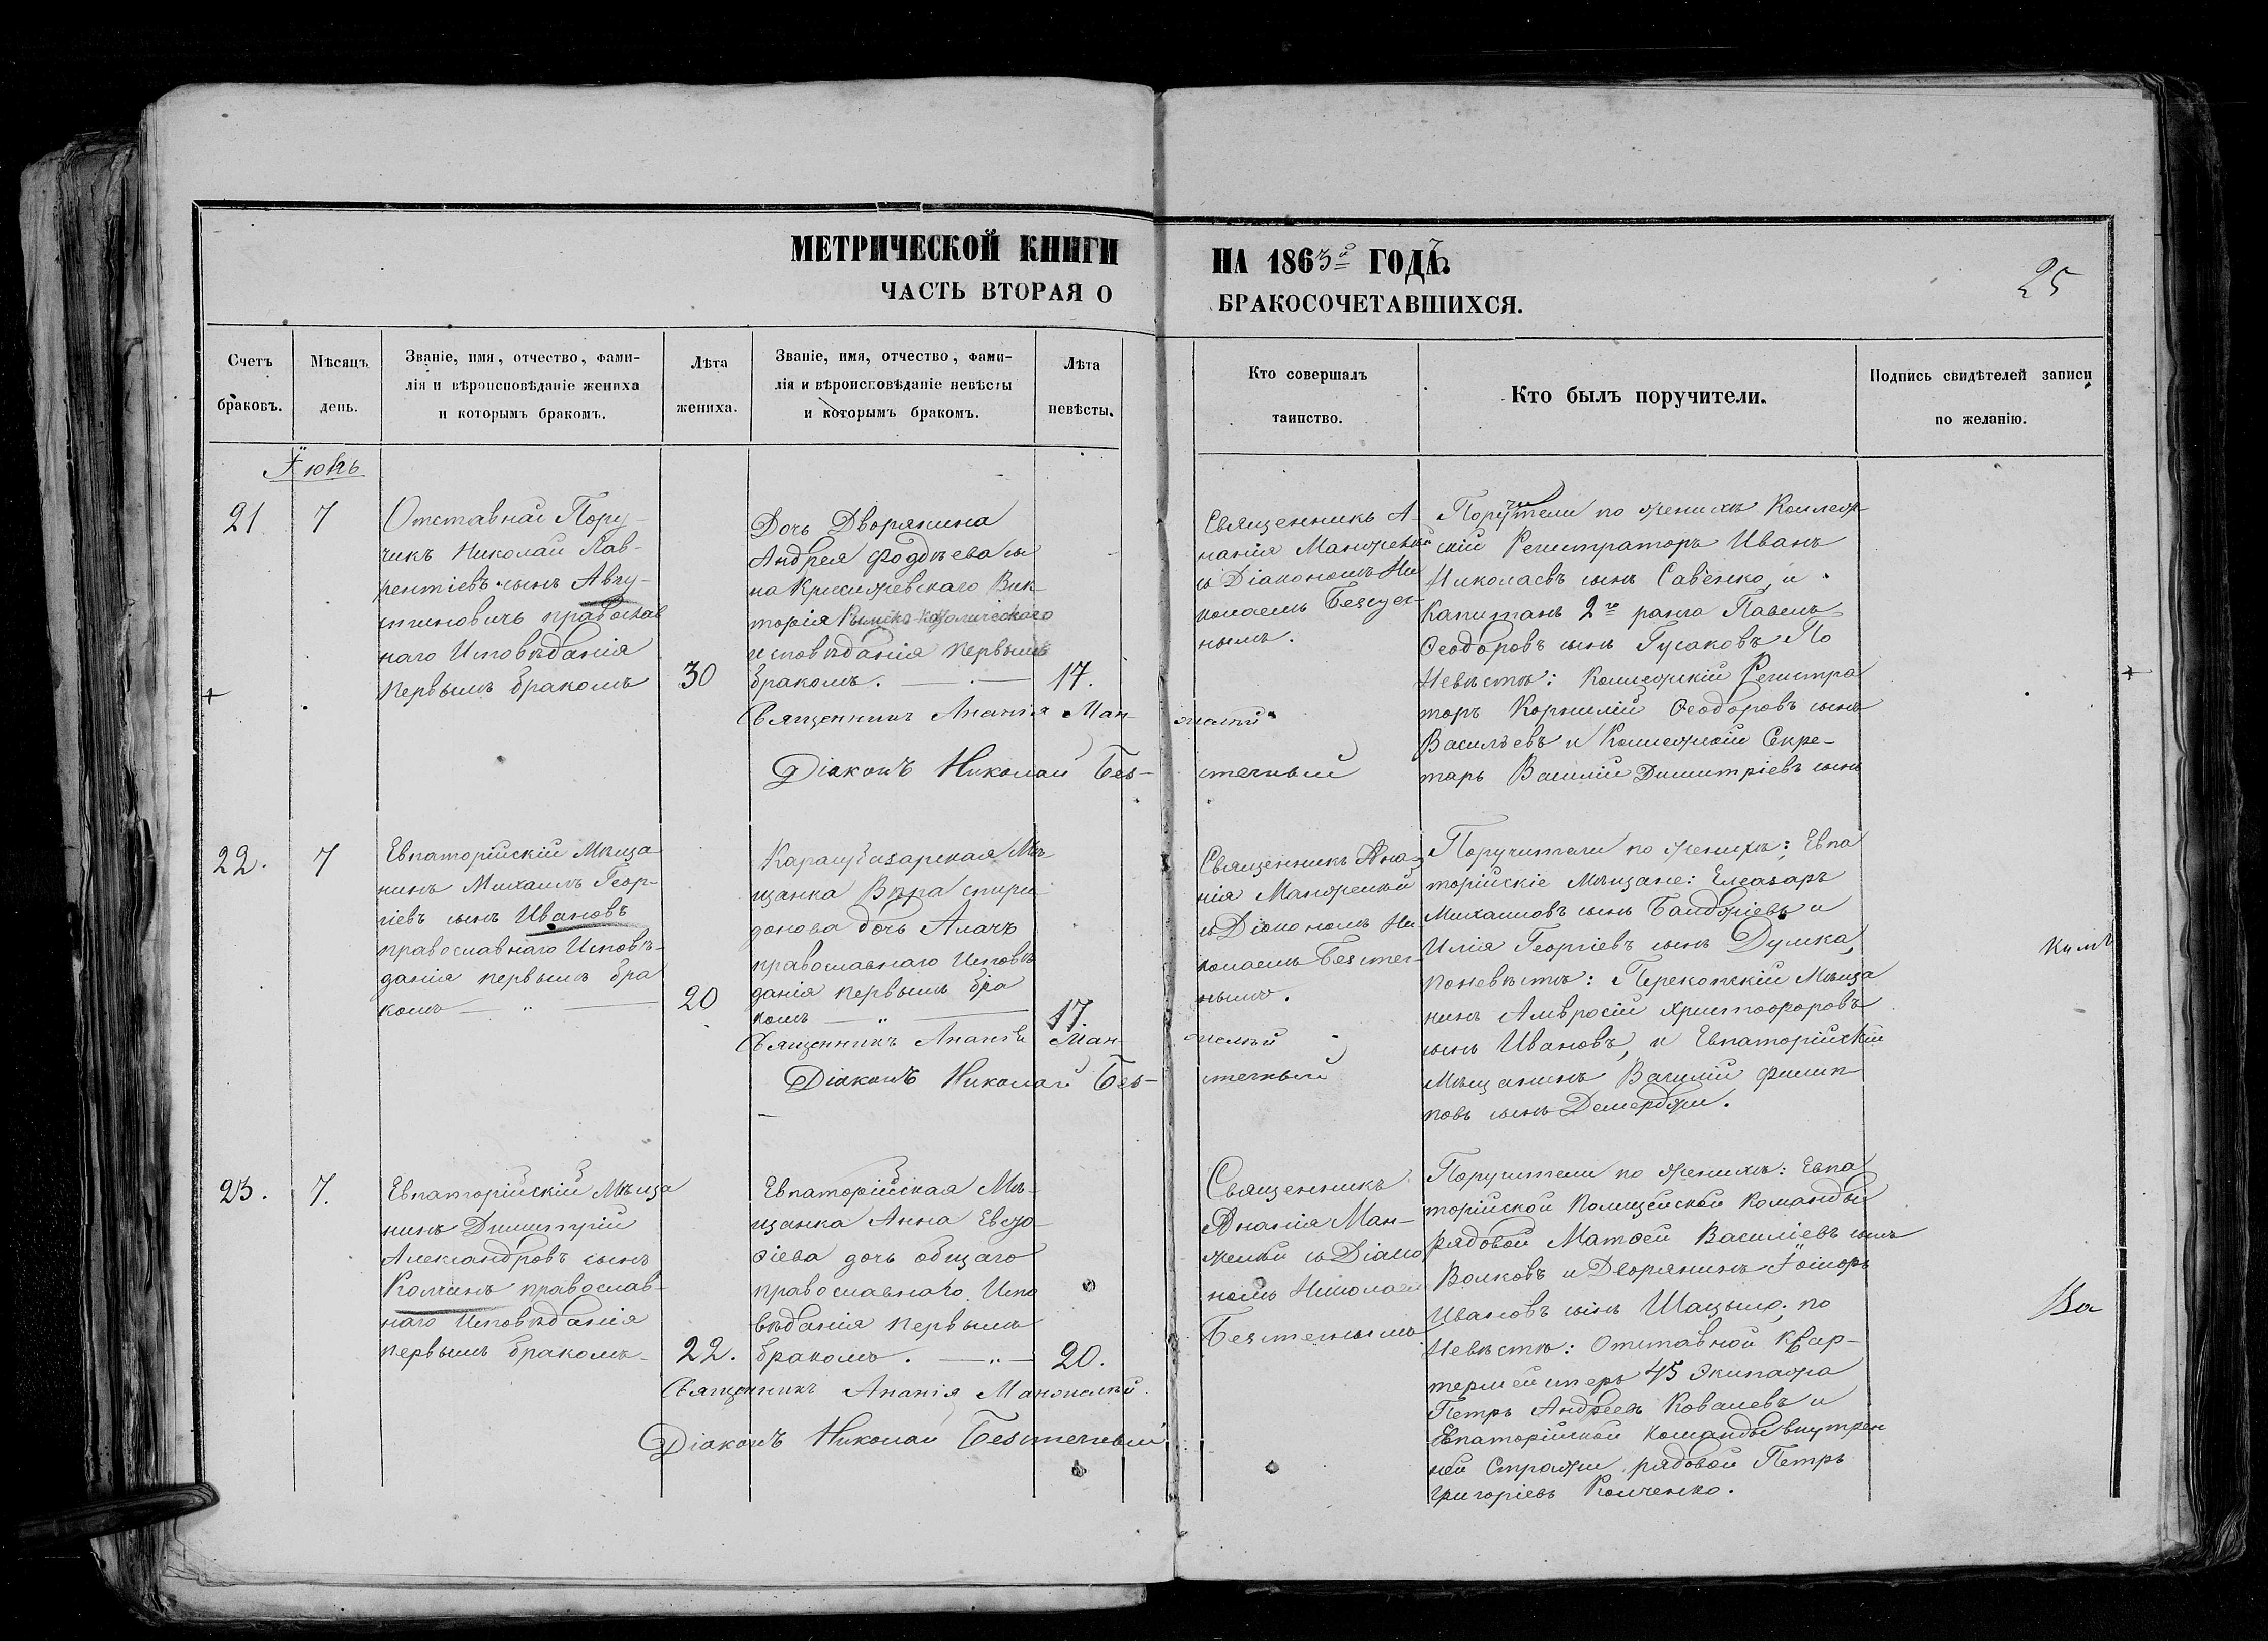 МЕТРИЧЕСКОЙ КНИГИ
НА 1863й ГОДЪ.
ЧАСТЬ ВТОРАЯ О
БРАКОСОЧЕТАВШИХСЯ.
25
Счетъ
браковъ.
Мѣсяцъ
день.
Званіе, имя, отчество, фами-
лія и вѣроисповѣданіе жениха
и которымъ бракомъ.
Лѣта
жениха.
Званіе, имя, отчество, фами-
лія и вѣроисповѣданіе невѣсты
и которымъ бракомъ.
Лѣта
невѣсты.
Кто совершалъ
таинство.
Кто былъ поручители.
Подпись свидѣтелей записи
по желанію.
Іюнь
21
7
Отставной Пору-
чикъ Николай Лав-
рентіевъ сынъ Авгу-
стиновичъ православ
наго Исповѣданія
первымъ бракомъ
30
Дочь Дворянина
Андрея Фадѣева сы
на Крисижевскаго Вик-
торія Римско-Католическаго
исповѣданія первымъ
бракомъ.
17.
Священникъ А-
нанія Манжелѣй
съ Діакономъ Ни
колаемъ Безтеч-
нымъ.
Поручители по женихѣ Коллеж-
скій Регистраторъ Иванъ
Николаевъ сынъ Савенко, и
Капитанъ 2го ранга Павелъ
Ѳеодоровъ сынъ Гусаковъ По
Невѣстѣ: Коллежскій Регистра
торъ Корнилій Ѳеодоровъ сынъ
Васильевъ и Коллежскій Секре-
тарь Василій Димитріевъ сынъ
Священникъ Ананія Манжелѣй
Діаконъ Николай Безтечный
22.
7
Евпаторійскій Мѣща
нинъ Михаилъ Геор-
гіевъ сынъ Ивановъ
православнаго Исповѣ-
данія первымъ бра
комъ
20
Карасубазарская Мѣ-
щанка Вѣра Спири
донова дочь Алачъ
православнаго Исповѣ
данія первымъ бра
комъ
17.
Священникъ Ана-
нія Манжелѣй
съ Діакономъ Ни
колаемъ Безтеч-
нымъ.
Поручители по женихѣ: Евпа
торійскіе Мѣщане: Елеазаръ
Михаиловъ сынъ Балджіевъ и
Илія Георгіевъ сынъ Думка,
по невѣстѣ: Перекопскій Мѣща
нинъ Амвросій Христофоровъ
сынъ Ивановъ, и Евпаторійскій
Мѣщанинъ Василій Филип
повъ сынъ Демерджи.
Священникъ Ананія Манжелѣй
Діаконъ Николай Безтечный
23.
7.
Евпаторійскій Мѣща
нинъ Димитрій
Александровъ сынъ
Колчинъ православ-
наго Исповѣданія
первымъ бракомъ
22.
Евпаторійская Мѣ-
щанка Анна Евсѳ-
ѳіева дочь общаго
православнаго Испо
вѣданія первымъ
бракомъ.
20.
Священникъ
Ананія Ман-
желѣй съ Діако
номъ Николаем
Безтечнымъ
Поручители по женихѣ: Евпа
торійской Полицейской Команды
рядовой Матѳей Василіевъ сынъ
Волковъ и Дворянинъ
Ивановъ сынъ по
Невѣстѣ: Отставной квар-
термейстеръ 45 Экипажа
Петръ Андреевъ Ковалевъ и
Евпаторійской Команды внутрен
ней Стражи рядовой Петръ
Григоріевъ Колченко.
Священникъ Ананія Манжелѣй
Діаконъ Николай Безтечный